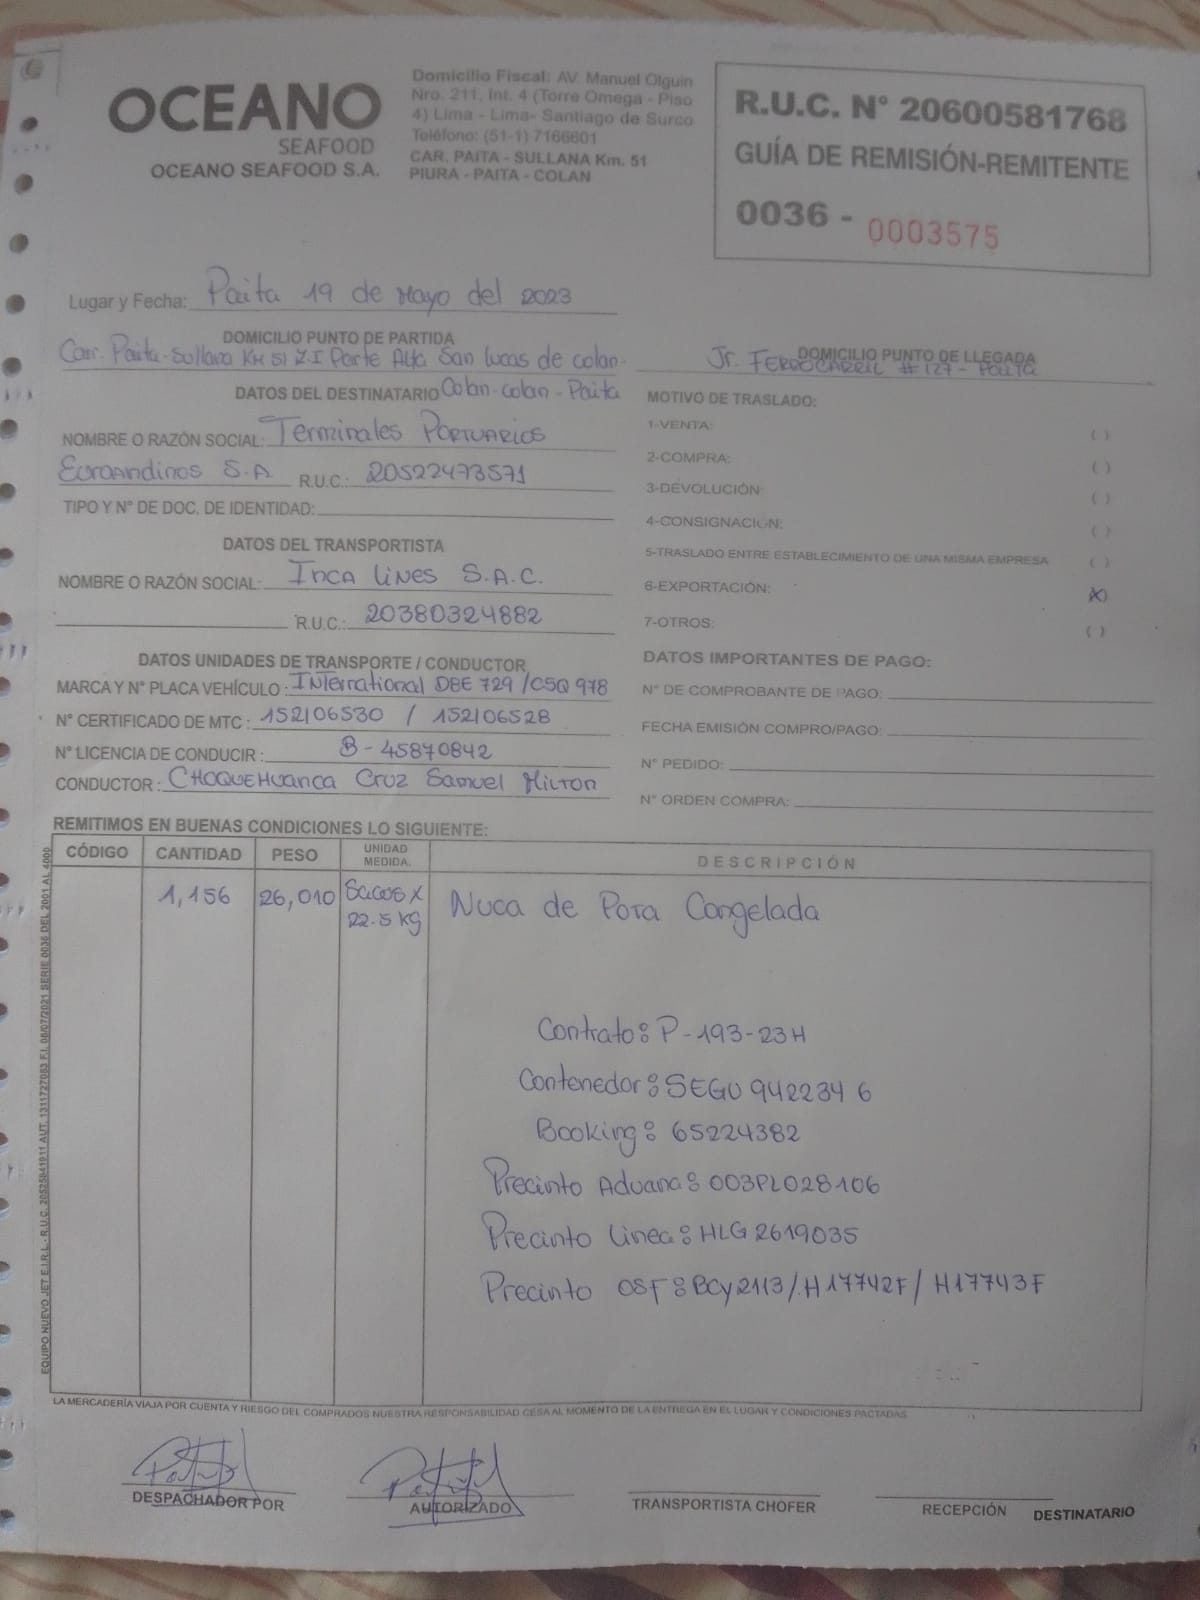 OCEANO
SEAFOOD
OCEANO SEAFOOD S.A.
Domicilio Fiscal: AV. Manuel Olguin
Nro. 211, Int. 4 (Torre Omega - Piso
4) Lima - Lima- Santiago de Surco
Teléfono: (51-1) 7166601
CAR. PAITA - SULLANA Km. 51
PIURA - PAITA - COLAN
R.U.C. N° 20600581768
GUÍA DE REMISIÓN-REMITENTE
0036 - 0003575
Lugar y Fecha: Paita 19 de Mayo del 2023
DOMICILIO PUNTO DE PARTIDA
Carr. Paita-Sullana KM 51 Z.I Parte Alta San Lucas de Colan-
Colan-Colan-Paita
DOMICILIO PUNTO DE LLEGADA
Jr. FERROCARRIL #127- Paita
DATOS DEL DESTINATARIO
NOMBRE O RAZÓN SOCIAL: Terminales Portuarios
Euroandinos S.A. R.U.C.: 20522473571
TIPO Y N° DE DOC. DE IDENTIDAD:
DATOS DEL TRANSPORTISTA
NOMBRE O RAZÓN SOCIAL: Inca Lines S.A.C.
R.U.C.: 20380324882
DATOS UNIDADES DE TRANSPORTE / CONDUCTOR
MARCA Y N° PLACA VEHÍCULO: International DBE 729 /C5Q 978
N° CERTIFICADO DE MTC: 152106530 / 152106528
N° LICENCIA DE CONDUCIR: B-45870842
CONDUCTOR: CHOQUEHuanca Cruz Samuel Milton
MOTIVO DE TRASLADO:
1-VENTA: ( )
2-COMPRA: ( )
3-DEVOLUCIÓN: ( )
4-CONSIGNACIÓN: ( )
5-TRASLADO ENTRE ESTABLECIMIENTO DE UNA MISMA EMPRESA ( )
6-EXPORTACIÓN: (X)
7-OTROS: ( )
DATOS IMPORTANTES DE PAGO:
N° DE COMPROBANTE DE PAGO:
FECHA EMISIÓN COMPRO/PAGO:
N° PEDIDO:
N° ORDEN COMPRA:
REMITIMOS EN BUENAS CONDICIONES LO SIGUIENTE:
CÓDIGO CANTIDAD PESO UNIDAD MEDIDA. DESCRIPCIÓN
1,156 26,010 Sacos X 22.5 KG Nuca de Pota Congelada
Contrato: P-193-23H
Contenedor: SEGU 942234 6
Booking: 65224382
Precinto Aduana: 003PL028106
Precinto Linea: HLG2619035
Precinto OSF: BCY2113/H17742F/H17743F
EQUIPO NUEVO JET E.I.R.L - R.U.C. 20525841911 AUT. 1311727083 F.I. 08/07/2021 SERIE 0036 DEL 2001 AL 4000
LA MERCADERÍA VIAJA POR CUENTA Y RIESGO DEL COMPRADOS NUESTRA RESPONSABILIDAD CESA AL MOMENTO DE LA ENTREGA EN EL LUGAR Y CONDICIONES PACTADAS.
DESPACHADOR POR
AUTORIZADO
TRANSPORTISTA CHOFER
RECEPCIÓN DESTINATARIO